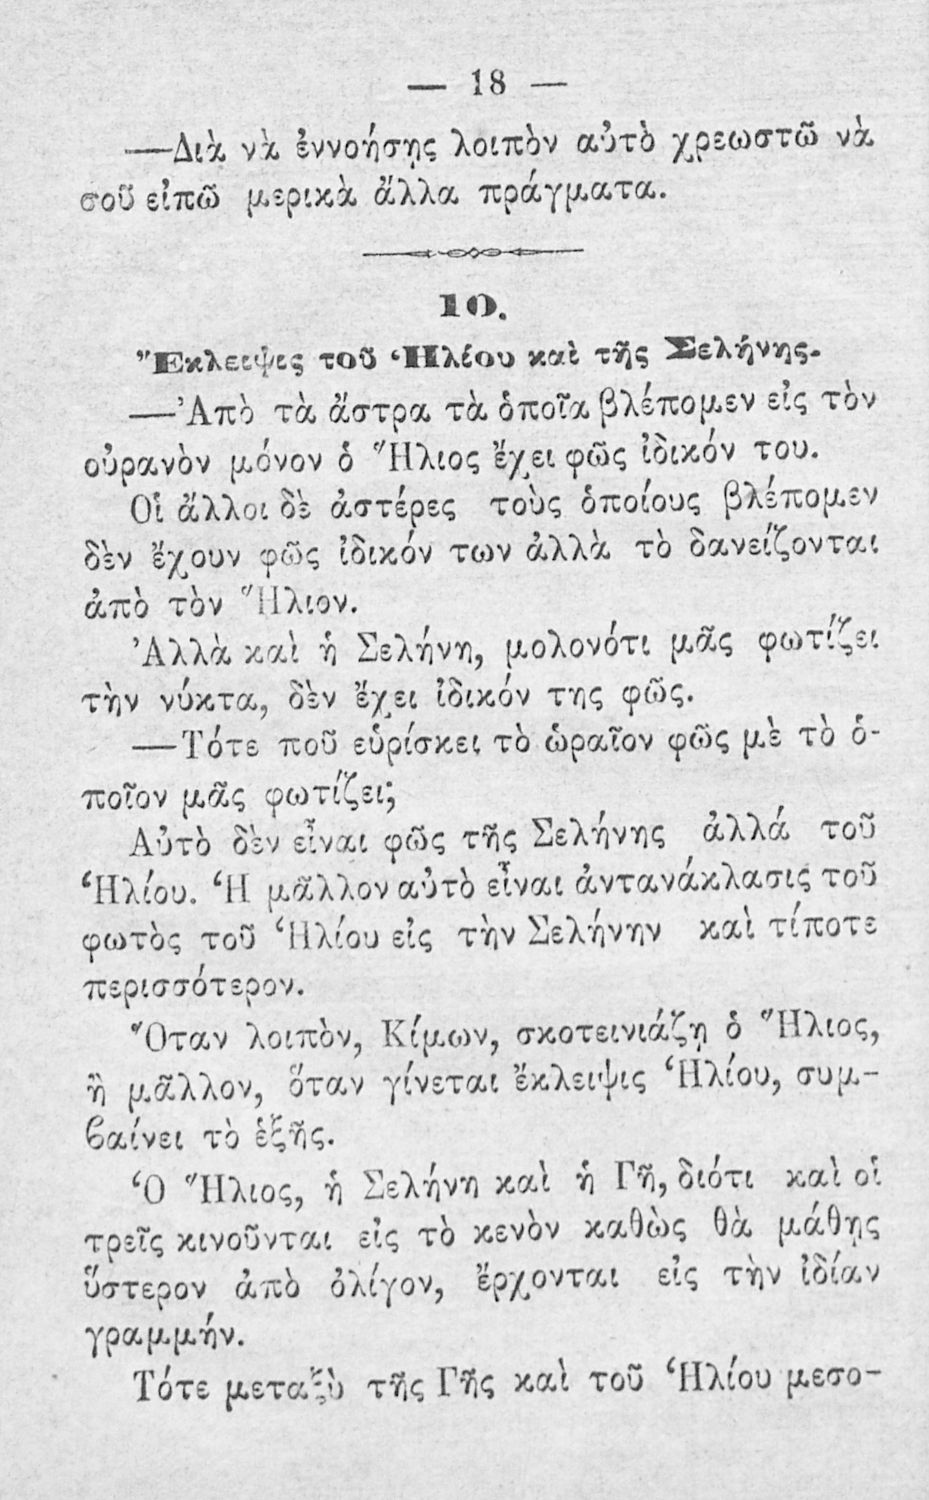 — 18 —
—Διὰ νὰ ἐννοήσῃς λοιπὸν αὐτὸ χρεωστῶ νὰ
σοῦ εἰπῶ μερικὰ ἄλλα πράγματα.
10.
Ἔκλειψις τοῦ Ἡλίου καὶ τῆς Σελήνης.
—Ἀπὸ τὰ ἄστρα τὰ ὁποῖα βλέπομεν εἰς τὸν
οὐρανὸν μόνον ὁ Ἥλιος ἔχει φῶς ἰδικόν του.
Οἱ ἄλλοι δὲ ἀστέρες τοὺς ὁποίους βλέπομεν
δὲν ἔχουν φῶς ἰδικόν των ἀλλὰ τὸ δανείζονται
ἀπὸ τὸν Ἥλιον.
Ἀλλὰ καὶ ἡ Σελήνη, μολονότι μᾶς φωτίζει
τὴν νύκτα, δὲν ἔχει ἰδικόν της φῶς.
—Τότε ποῦ εὑρίσκει τὸ ὡραῖον φῶς μὲ τὸ ὁ-
ποῖον μᾶς φωτίζει;
Αὐτὸ δὲν εἶναι φῶς τῆς Σελήνης ἀλλά τοῦ
Ἡλίου. Ἡ μᾶλλον αὐτὸ εἶναι ἀντανάκλασις τοῦ
φωτὸς τοῦ Ἡλίου εἰς τὴν Σελήνην καὶ τίποτε
περισσότερον.
Ὅταν λοιπὸν, Κίμων, σκοτεινιάζῃ ὁ Ἥλιος,
ἢ μᾶλλον, ὅταν γίνεται ἔκλειψις Ἡλίου, συμ-
βαίνει τὸ ἑξῆς.
Ὁ Ἥλιος, ἡ Σελήνη καὶ ἡ Γῆ, διότι καὶ οἱ
τρεῖς κινοῦνται εἰς τὸ κενὸν καθὼς θὰ μάθῃς
ὕστερον ἀπὸ ὀλίγον, ἔρχονται εἰς τὴν ἰδίαν
γραμμήν.
Τότε μεταξὺ τῆς Γῆς καὶ τοῦ Ἡλίου μεσο-